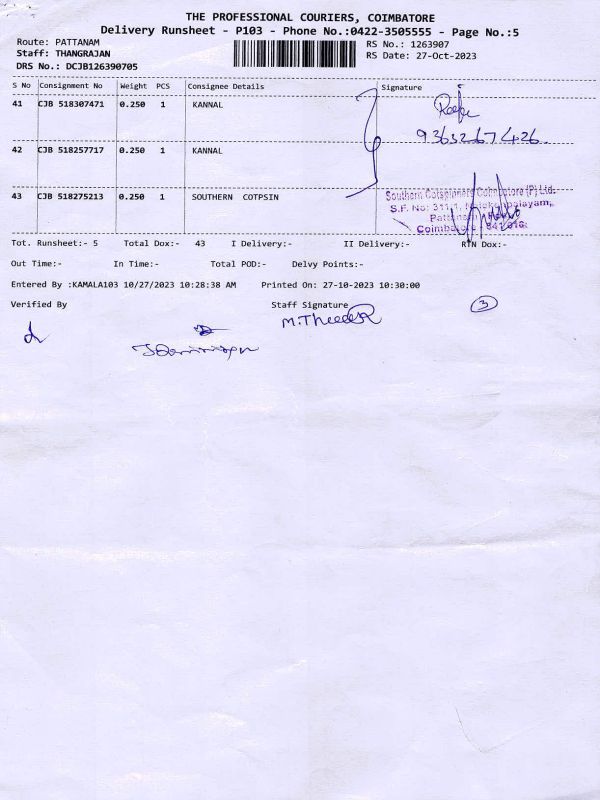 THE PROFESSIONAL COURIERS, COIMBATORE
Delivery Runsheet - P103 - Phone No.:0422-3505555 - Page No.:5
Route: PATTANAM
Staff: THANGRAJAN
DRS No.: DCJB126390705
RS No.: 1263907
RS Date: 27-Oct-2023
S No Consignment No Weight PCS Consignee Details Signature
41 CJB 518307471 0.250 1 KANNAL
42 CJB 518257717 0.250 1 KANNAL
43 CJB 518275213 0.250 1 SOUTHERN COTPSIN
Southern Cotspinners Coimbatore (P) Ltd.
S.F. No: 311/1,
Coimbatore - 641 016.
Tot. Runsheet:- 5 Total Dox:- 43 I Delivery:- II Delivery:- RTN Dox:-
Out Time:- In Time:- Total POD:- Delvy Points:-
Entered By :KAMALA103 10/27/2023 10:28:38 AM Printed On: 27-10-2023 10:30:00
Verified By Staff Signature
3